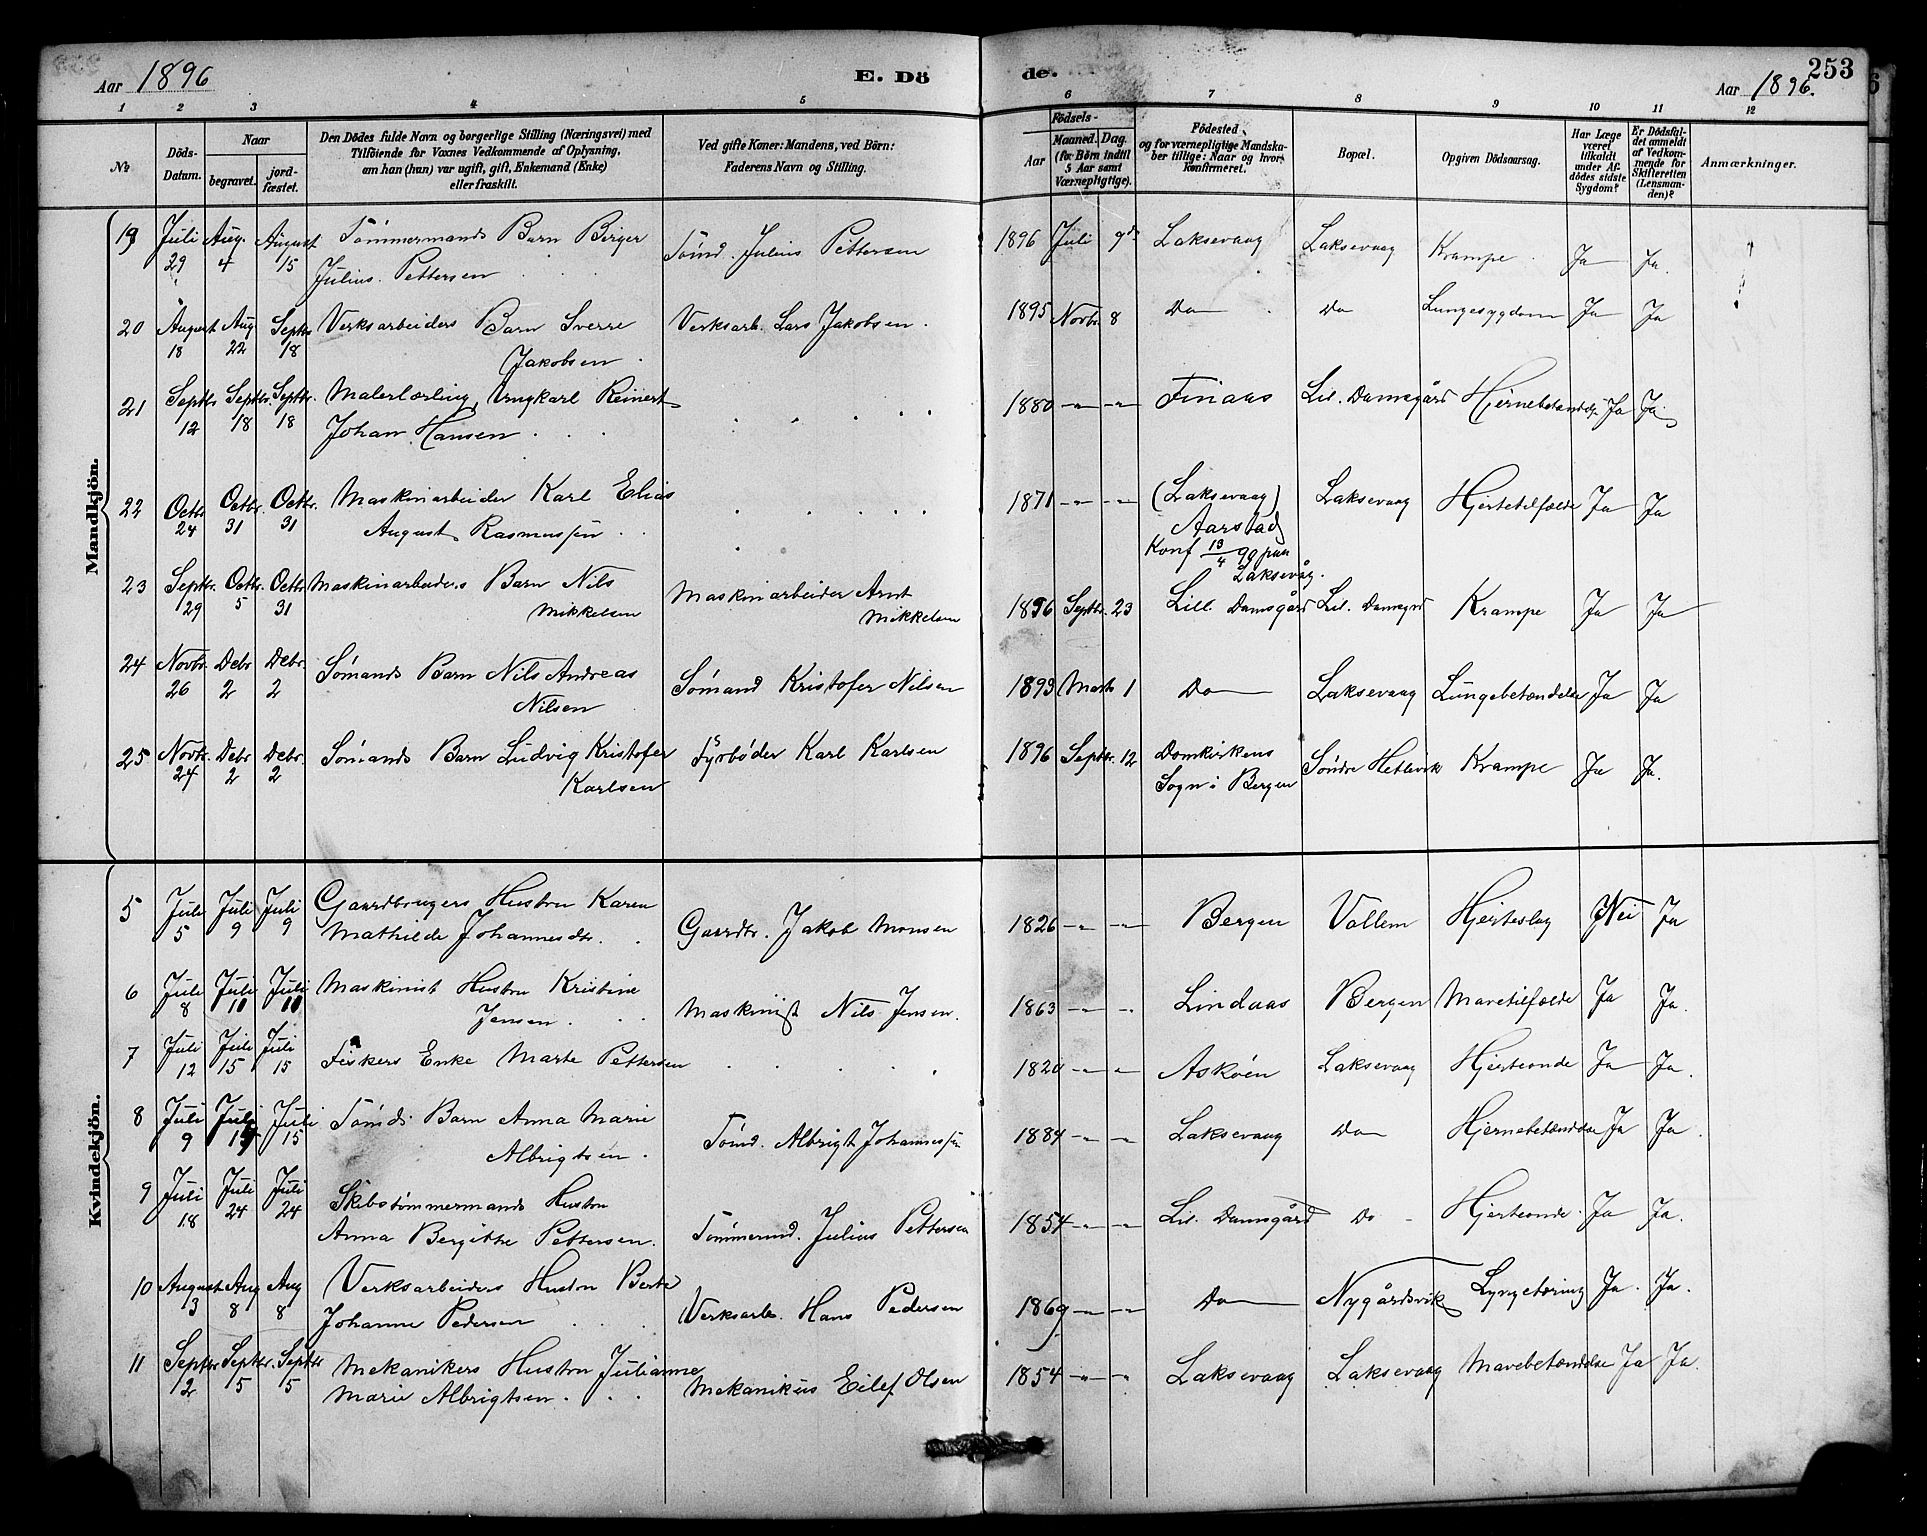 Aar 1896
E. Dö
de.
253
Aar 1896.
1 2 3 4 5 6 7 8 9 10 11 12
No
Döds-Datum.
Naar
begravet.
jord-fæstet.
Den Dödes fulde Navn og borgerlige Stilling (Næringsvei) med
Tilföiende for Voxnes Vedkommende af Oplysning,
om han (hun) var ugift, gift, Enkemand (Enke)
eller fraskilt.
Ved gifte Koner: Mandens, ved Börn:
Faderens Navn og Stilling.
Födsels-
Aar
Maaned. Dag.
(for Börn indtil
5 Aar samt
Værnepligtige).
Födested
og for værnepligtige Mandska-
ber tillige: Naar og hvor
Konfirmeret.
Bopæl.
Opgiven Dödsaarsag.
Har Læge
været
tilkaldt
under Af-
dödes sidste
Sygdom?
Er Dödsfal-
det anmeldt
af Vedkom-
mende for
Skifteretten
(Lensman-
den)?
Anmærkninger.
Mandkjön.
19 Juli 29 Aug. 4 August 15 Tømmermands Barn Birger
Julius Pettersen
Tømd. Julius Pettersen 1896 Juli 9de Laksevaag Laksevaag Krampe Ja Ja.
20 August 18 Aug 22 Septbr 18 Verksarbeiders Barn Sverre
Jakobsen
Verksarb. Lars Jakobsen. 1895 Novbr. 8 Do Do Lungesygdom Ja Ja
21 Septbr 12 Septbr. 18 Septbr. 18 Malerlærling, Ungkarl Reinert
Johan Hansen
1880 -"- -"- Finaas Lil. Damsgård Hjernebetændelse Ja Ja.
22 Octbr. 24 Octbr. 31 Octbr. 31 Maskinarbeider Karl Elias
August Rasmussen
1871 -"- -"- (Laksevaag)
Aarstad
Konf 13/4 90 paa
Laksevåg.
Laksevaag Hjertetilfælde Ja Ja
23 Septbr. 29 Octbr. 5 Octbr. 31 Maskinarbeiders Barn Nils
Mikkelsen
Maskinarbeider Arnt
Mikkelsen
1896 Septbr. 23 Lill. Damsgård Lil. Damsgrd Krampe Ja Ja
24 Novbr. 26 Debr 2 Debr. 2 Sømands Barn Nils Andreas
Nilsen
Sømand Kristofer Nilsen 1893 Marts 1 Do Laksevaag Lungebetændelse Ja Ja
25 Novbr. 24 Debr 2 Debr. 2 Sømands Barn Ludvig Kristofer
Karlsen
Fyrbøder Karl Karlsen 1896 Septbr. 12 Domkirkens
Sogn i Bergen
Søndre Hetlevik Krampe Ja Ja.
Kvindekjön.
5 Juli 5 Juli 9 Juli 9 Gaardbrugers Hustru Karen
Mathilde Johannesdtr.
Gaardbr. Jakob Monsen 1826 -"- -"- Bergen Vallem Hjerteslag Nei Ja
6 Juli 8 Juli 10 Juli 10 Maskinist Hustru Kristine
Jensen
Maskinist Nils Jensen. 1863 -"- -"- Lindaas Bergen Mavetilfælde Ja Ja.
7 Juli 12 Juli 15 Juli 15 Fiskers Enke Marte Pettersen
1820 -"- -"- Askøen Laksevaag Hjerteonde Ja Ja.
8 Juli 9 Juli 15 Juli 15 Tømds Barn Anna Marie
Albrigtsen.
Tømd. Albrigt Johannessen 1884 -"- -"- Laksevaag Do Hjernebetændelse Ja Ja.
9 Juli 18 Juli 24 Juli 24 Skibstømmermands Hustru
Anna Bergitte Pettersen.
Tømmermd. Julius Pettersen 1854 -"- -"- Lil. Damsgård Do Hjerteonde. Ja Ja.
10 August 3 Aug 8 Aug 8 Verksarbeiders Hustru Berte
Johanne Pedersen
Verksarb. Hans Pedersen 1869 -"- -"- Do Nygårdsvik Lungetæring Ja. Ja.
11 Septbr 12 Septbr. 15 Septbr 15 Mekanikers Hustru Julianne
Marie Albrigtsen.
Mekanikus Eilef Olsen 1854 -"- -"- Laksevaag Laksevaag Mavebetændelse Ja Ja.